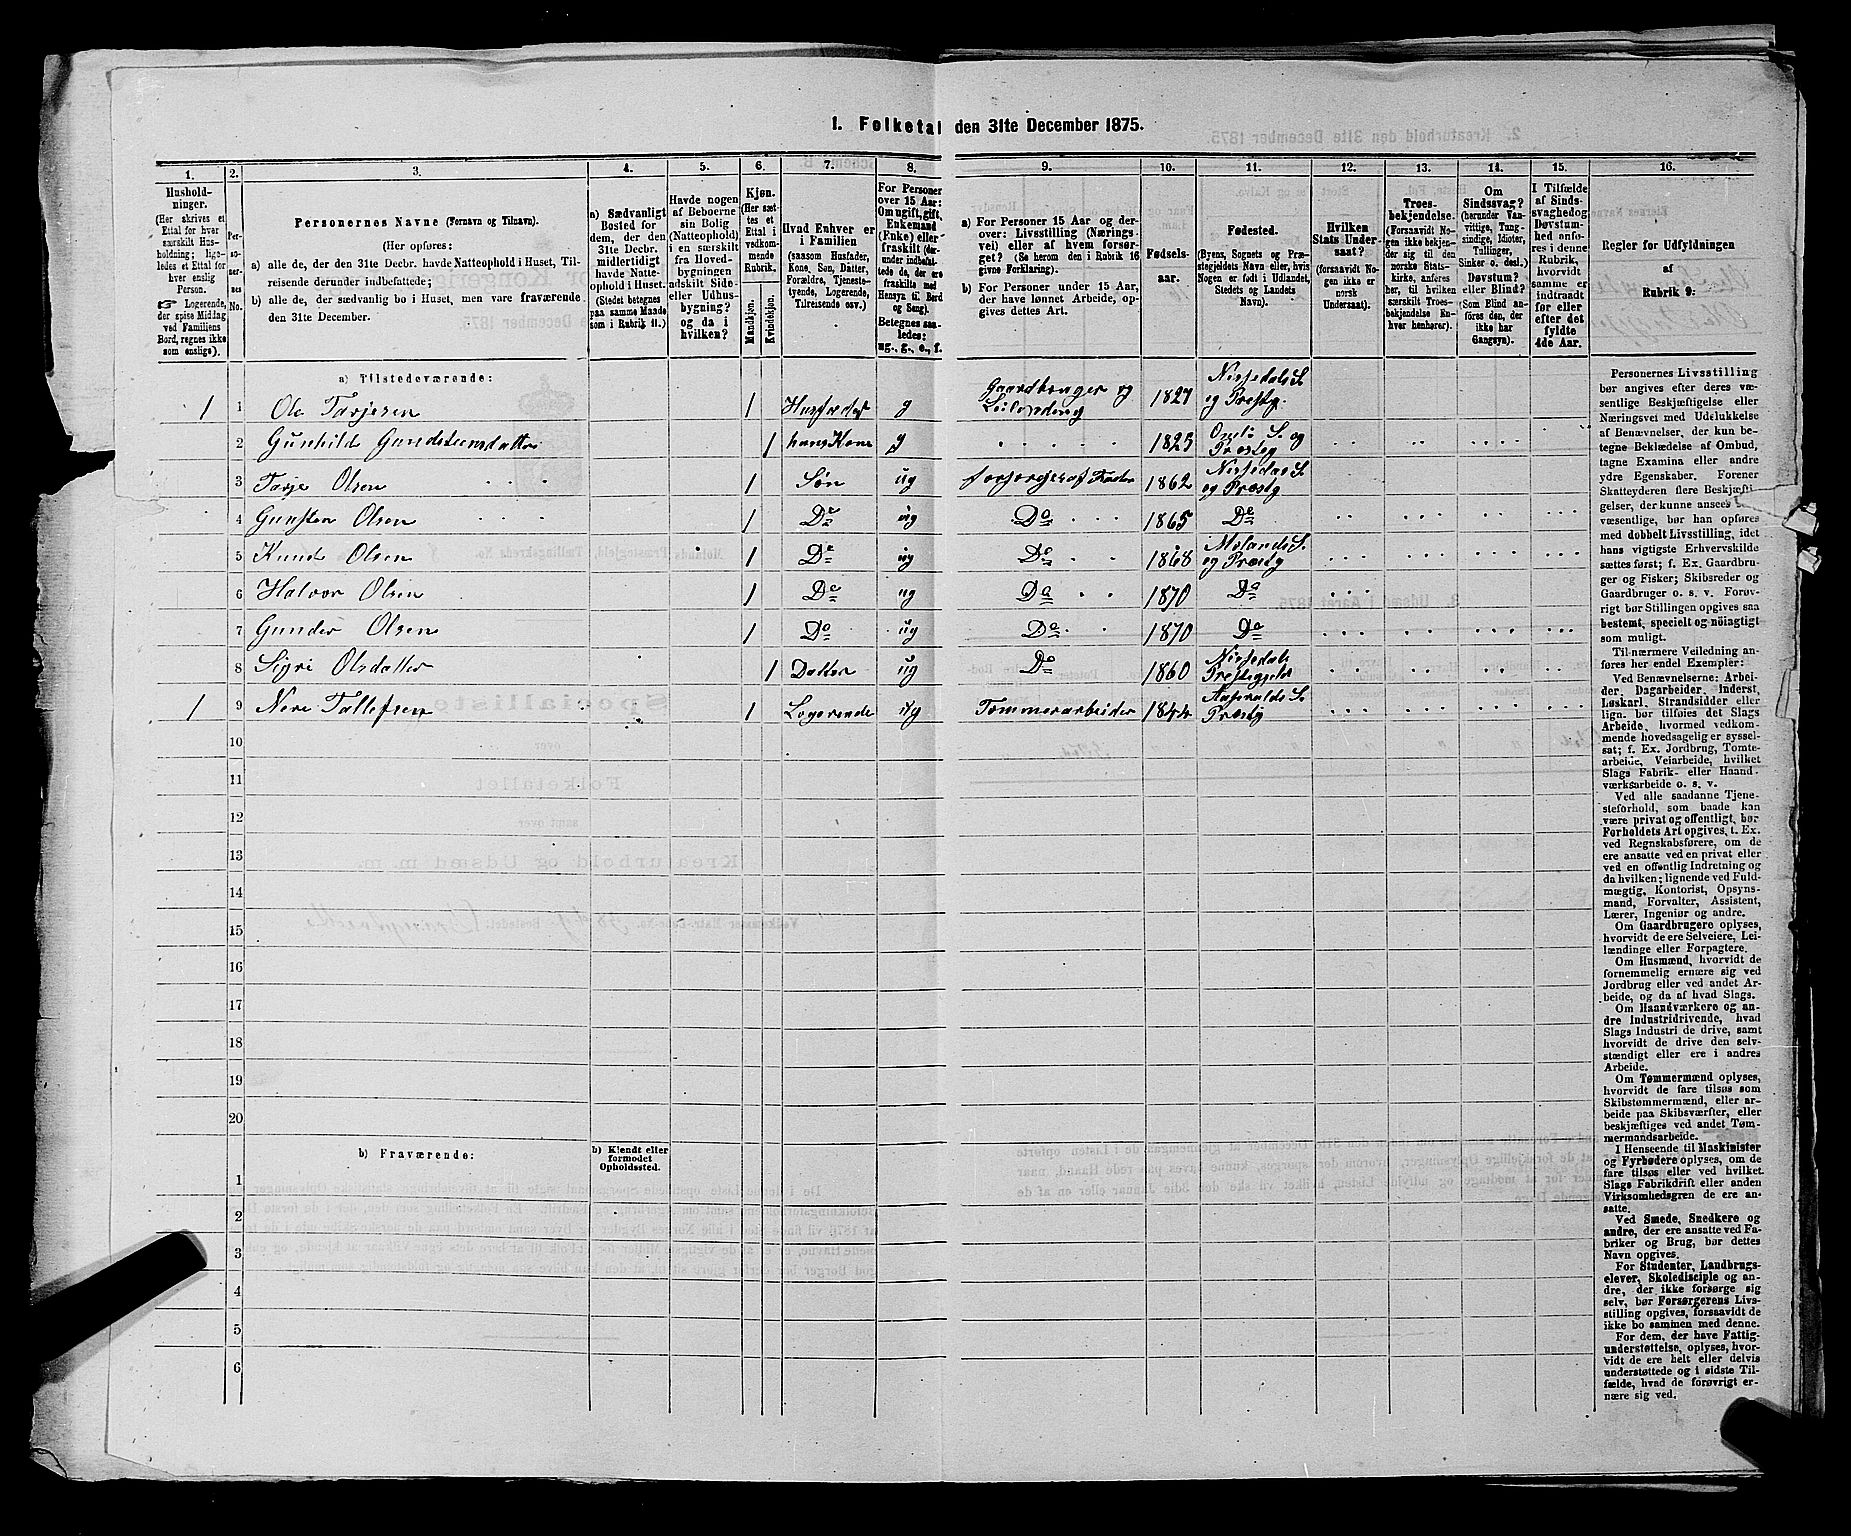 1. Folketal den 31te December 1875.
1.
2.
3.
4.
5.
6.
7.
8.
9.
10.
11.
12.
13.
14.
15.
16.
Hushold-
ninger.
(Her skrives et
Ettal for hver
særskilt Hus-
holdning; lige-
ledes et Ettal for
hver enslig
Person.
☞ Logerende,
der spise Middag
ved Familiens
Bord, regnes ikke
som enslige).
Per-
so-
ner-
nes
No.
Personernes Navne (Fornavn og Tilnavn).
(Her opføres:
a) alle de, der den 31te Decbr. havde Natteophold i Huset, Til-
reisende derunder indbefattede;
b) alle de, der sædvanlig bo i Huset, men vare fraværende
den 31te December.
a) Sædvanligt
Bosted for
dem, der den
31te Decbr.
midlertidigt
havde Natte-
ophold i Huset.
(Stedet betegnes
paa samme Maade
som i Rubrik 11.)
Havde nogen
af Beboerne
sin Bolig
(Natteophold)
i en særskilt
fra Hoved-
bygningen
adskilt Side-
eller Udhus-
bygning?
og da i
hvilken?
Kjøn.
(Her sæt-
tes et
Ettal i
vedkom-
mende
Rubrik.
Mandkjøn.
Kvindekjøn.
Hvad Enhver er
i Familien
(saasom Husfader,
Kone, Søn, Datter,
Forældre, Tjeneste-
tyende, Logerende,
Tilreisende osv.)
For Personer
over 15 Aar:
Om ugift, gift,
Enkemand
(Enke) eller
fraskilt (der-
under indbefat-
tede de, der ere
fraskilte med
Hensyn til Bord
og Seng).
Betegnes saa-
ledes:
ug., g., e., f.
a) For Personer 15 Aar og der-
over: Livsstilling (Nærings-
vei) eller af hvem forsør-
get? (Se herom den i Rubrik 16
givne Forklaring).
b) For Personer under 15 Aar,
der have lønnet Arbeide, op-
gives dettes Art.
Fødsels-
aar.
Fødested.
(Byens, Sognets og Præ-
stegjeldets Navn eller, hvis
Nogen er født i Udlandet,
Stedets og Landets
Navn).
Hvilken
Stats Under-
saat?
(forsaavidt No-
gen ikke er
norsk
Undersaat).
Troes-
bekjendelse.
(Forsaavidt No-
gen ikke bekjen-
der sig til den
norske Stats-
kirke, anføres
her, til hvilken
særskilt Troes-
bekjendelse En-
hver henhører).
Om
Sindssvag?
(herunder Van-
vittige, Tung-
sindige, Idioter,
Tullinger,
Sinker o. desl.)
Døvstum?
eller Blind?
(Som Blind an-
føres den, der
ikke har
Gangsyn).
I Tilfælde
af Sinds-
svaghed og
Døvstum-
hed anfø-
res i denne
Rubrik,
hvorvidt
samme er
indtraadt
før eller
efter det
fyldte
4de Aar.
Regler for Udfyldningen
af
Rubrik 9:
a) Tilstedeværende:
1 1 Ole Tarjesen 1 Husfader g Gaardbruger og Leilænding 1827 Nissedals S. og Præstg.
2 Gunhild Gundsteensdatter 1 hans Kone g 1823 S. og Præstg
3 Tarje Olsen 1 Søn ug forsørges af Fader 1862 Nissedals S. og Præstg
4 Gunsten Olsen 1 Do ug Do 1865 Do
5 Knud Olsen 1 Do ug Do 1868 Molands S. og Præstg
6 Halvor Olsen 1 Do ug Do 1870 Do
7 Gunder Olsen 1 Do ug Do 1870 Do
8 Sigri Olsdatter 1 Datter ug Do 1860 Nissedals Præstegjeld
1 9 Nere Tallefsen 1 Logerende ug Tømmerarbeider 1844 S. Præstg
10
11
12
13
14
15
16
17
18
19
20
b) Fraværende:
b) Kjendt eller
formodet
Opholdssted.
1
2
3
4
5
6
Personernes Livsstilling
bør angives efter deres væ-
sentlige Beskjæftigelse eller
Næringsvei med Udelukkelse
af Benævnelser, der kun be-
tegne Beklædelse af Ombud,
tagne Examina eller andre
ydre Egenskaber. Forener
Skatteyderen flere Beskjæfti-
gelser, der kunne ansees
væsentlige, bør han opføres
med dobbelt Livsstilling, idet
hans vigtigste Erhvervskilde
sættes først; f. Ex. Gaardbru-
ger og Fisker; Skibsreder og
Gaardbruger o. s. v. Forøv-
rigt bør Stillingen opgives saa
bestemt, specielt og nöiagtigt
som muligt.
Til nærmere Veiledning an-
føres her endel Exempler:
Ved Benævnelserne: Arbei-
der, Dagarbeider, Inderst,
Løskarl, Strandsidder eller
lign. bør tilføies det Slags
Arbeide, hvormed vedkom-
mende hovedsagelig er syssel-
sat; f. Ex. Jordbrug, Tomte-
arbeide, Veiarbeide, hvilket
Slags Fabrik- eller Haand-
værksarbeide o. s. v.
Ved alle saadanne Tjene-
steforhold, som baade kan
være privat og offentligt, bør
Forholdets Art opgives, t. Ex.
ved Regnskabsførere, om de
ere ansatte ved en privat eller
ved en offentlig Indretning og
da hvilken; lignende ved Fuld-
mægtig, Kontorist, Opsyns-
mand, Forvalter, Assistent,
Lærer, Ingeniør og andre.
Om Gaardbrugere oplyses,
hvorvidt de ere Selveiere, Lei-
lændinge eller Forpagtere.
Om Husmænd, hvorvidt de
fornemmelig ernære sig ved
Jordbrug eller ved andet Ar-
beide, og da af hvad Slags.
Om Haandværkere og an-
dre Industridrivende, hvad
Slags Industri de drive, samt
hvorvidt de drive den selv-
stændigt eller ere i andres
Arbeide.
Om Tømmermænd oplyses,
hvorvidt de fare tilsøs som
Skibstømmermænd, eller ar-
beide paa Skibsværfter, eller
beskjæftiges ved andet Tøm-
mermandsarbeide.
I Henseende til Maskinister
og Fyrbødere oplyses, om de
fare tilsøs eller ved hvilket
Slags Fabrikdrift eller anden
Virksomhedsgren de ere an-
satte.
Ved Smede, Snedkere og
andre, der ere ansatte ved Fa-
briker og Brug, bør dettes
Navn opgives.
For Studenter, Landbrugs-
elever, Skoledisciple og an-
dre, der ikke forsørge sig
selv, bør Forsørgerens Livs-
stilling opgives, forsaavidt de
ikke bo sammen med denne.
For dem, der have Fattig-
understøttelse, oplyses, hvor-
vidt de ere helt eller delvis
understøttede og i sidste Til-
fælde, hvad de forøvrigt er-
nære sig ved.